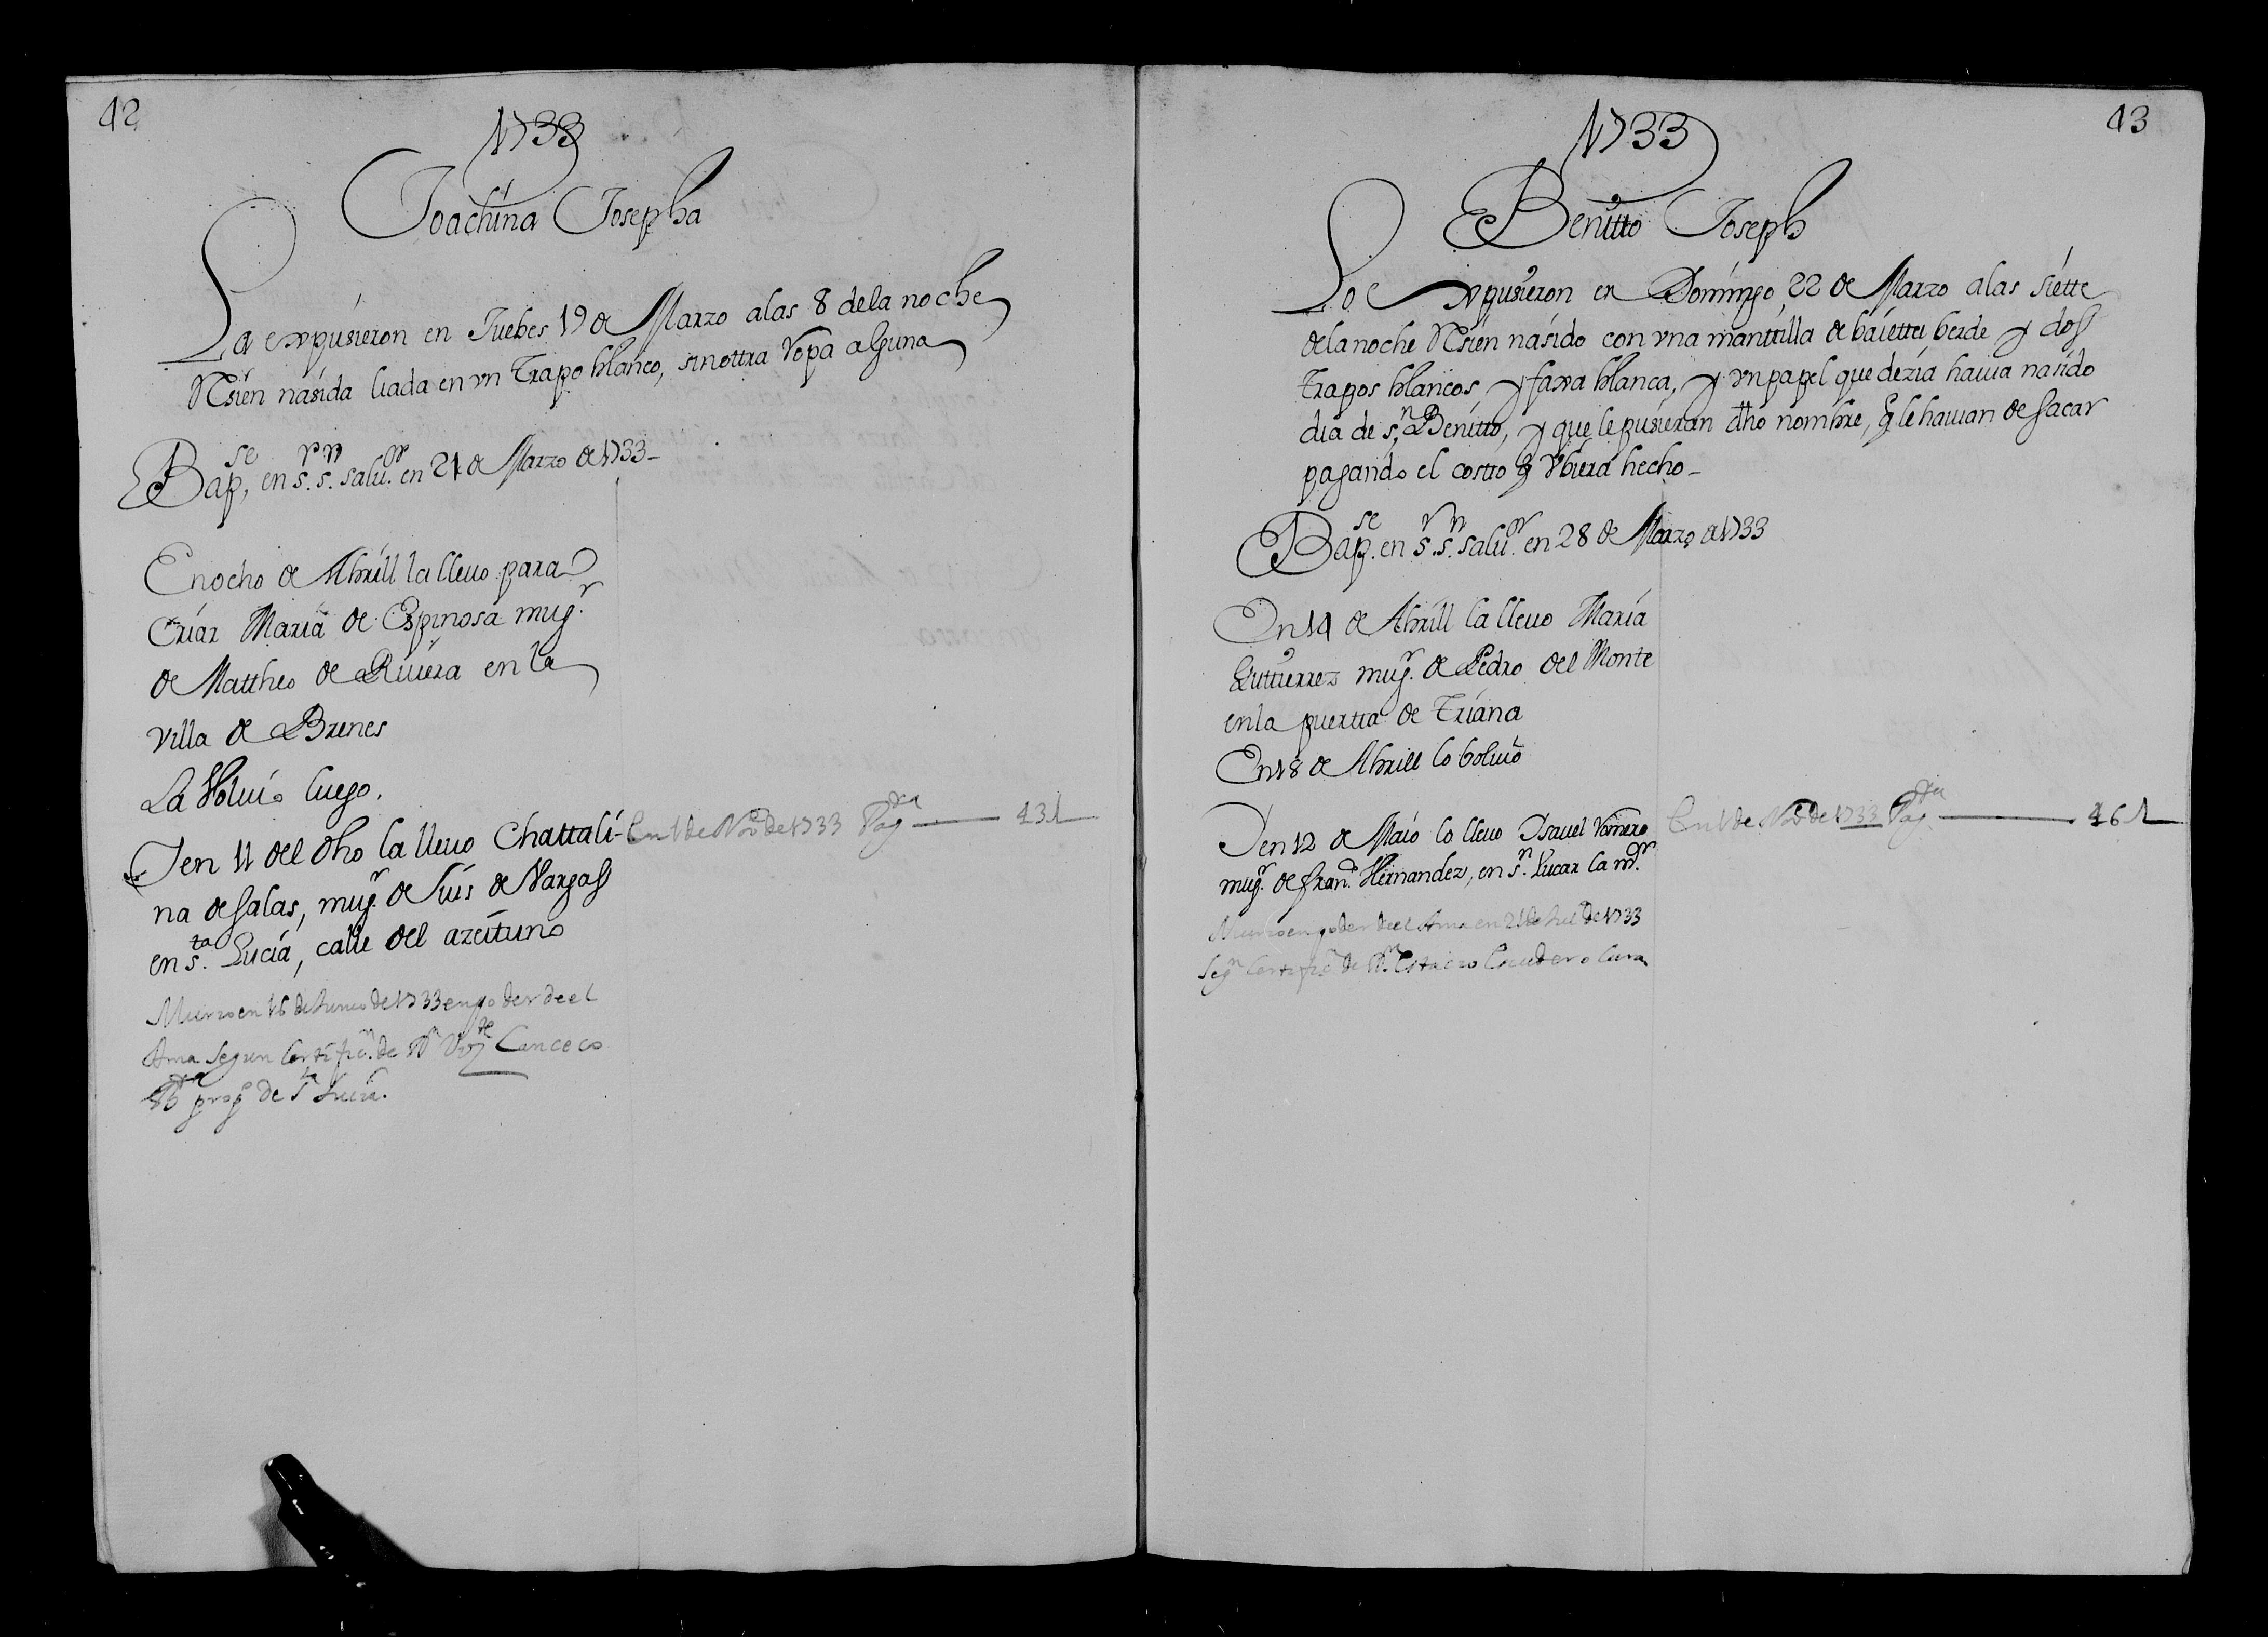 42
1733
Joachina Josepha
La expusieron en Juebes 19 de Marzo a las 8 de la noche
Resien nasida liada en vn trapo blanco, sin ottra Ropa alguna
Bapse. en Sr. Sn. Salvor. en 21 de Marzo de 1733
En ocho de Abrill la lleuo para
Criar Maria de Espinosa mugr.
de Mattheo de Riuera en la
Villa de Brenes
La Voluio luego.
I en 11 del dho la lleuo Chattali-
na de Salas, mugr. de Luis de Vargas
en Sta. Lucia, calle del azeituno
En 1 de Nove. de 1733 Pagda 431
Murio en 16 de Junio de 1733 en poder de el
Ama segun Certificn. de Dn Canceco
de Sta Lucia.
43
1733
Benitto Joseph
Lo expusieron en Domingo 22 de Marzo a las siette
de la noche Resien nasido con vna manttilla de baietta berde y dos
trapos blancos, y faxa blanca, y vn papel que dezia hauia nasido
dia de Sn. Benitto, y que le pusieran dho nombre, q le hauian de sacar
pagando el costto q Vbiera hecho
Bapse. en Sr. Sn. Salvor. en 28 de Marzo de 1733
En 14 de Abrill la lleuo Maria
Guttierrez mugr. de Pedro del Monte
en la puertta de Triana
En 18 de Abrill lo boluio
I en 12 de Maio lo lleuo Isauel Romero
mugr. de Franco. Hernandez, en Sn. Lucar la mr.
En 1 de Nove. de 1733 Pagda 461
Murio en poder de el Ama en 21 de Jul de 1733
Segn Certificn de Dn. Escudero Cura